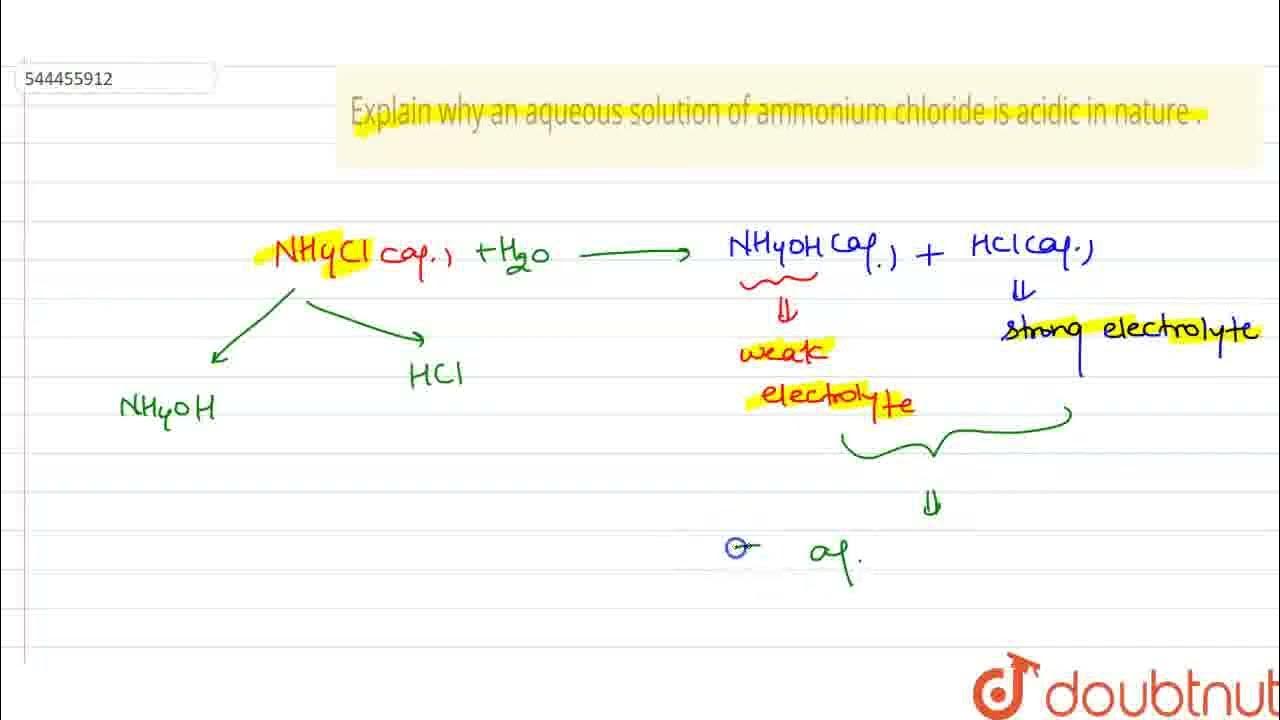 544455912
Explain why an aqueous solution of ammonium chloride is acidic in nature .
NH4Cl (aq.) + H2O ⟶ NH4OH (aq.) + HCl (aq.)
⇓ ⇓
strong electrolyte
weak
electrolyte
HCl
NH4OH
⇓
aq.
doubtnut